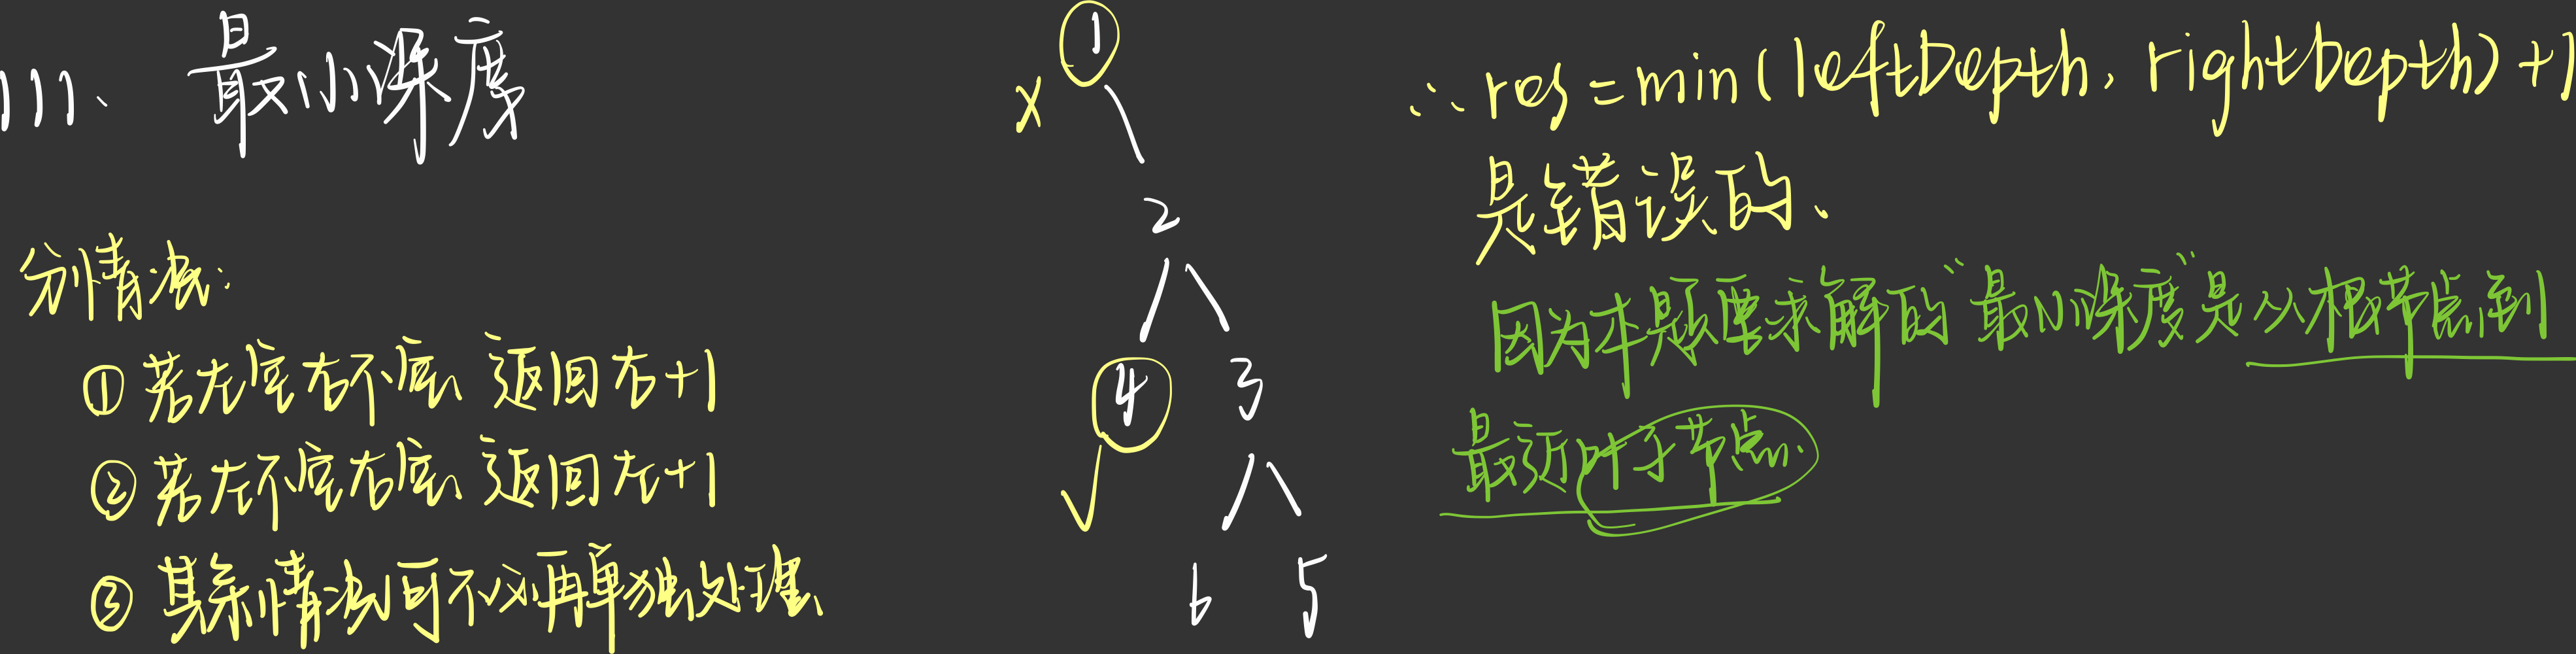 111、 最小深度
分情况:
① 若左空右不空、返回右+1
② 若左不空右空、返回左+1
③ 其余情况可不必再单独处理、
1
x
2
4
3
6
5
∴ res = min(leftDepth, rightDepth)+1
是错误的、
因为本题要求解的“最小深度”是从根节点到
最近叶子节点.